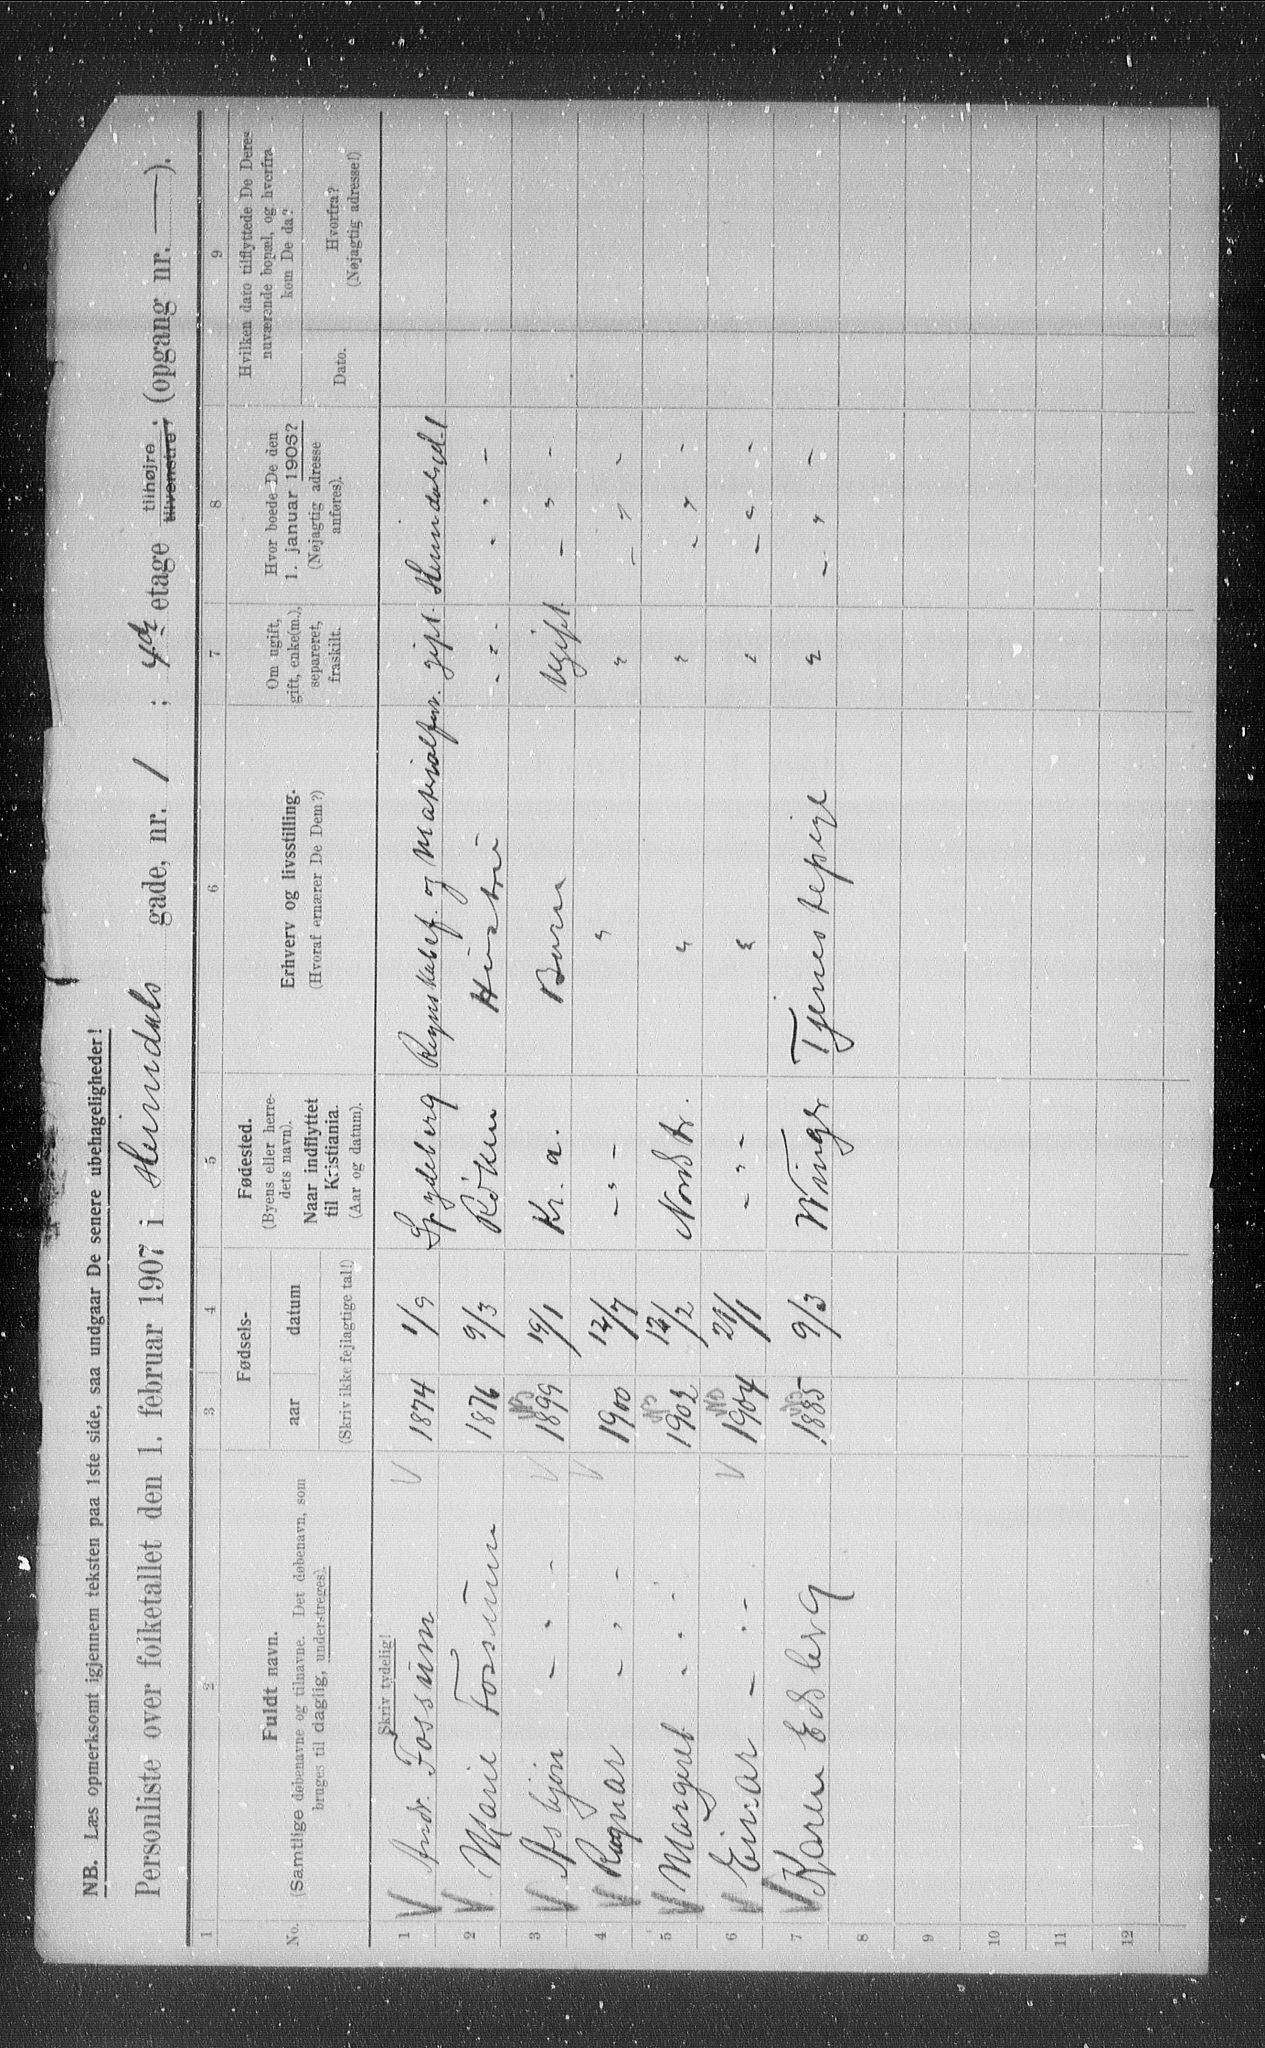 NB. Læs opmerksomt igjennem teksten paa 1ste side, saa undgaar De senere ubehageligheder!
Personliste over folketallet den 1. februar 1907 i Heimdals gade, nr. 1 ; 4de etage tilhøjre tilvenstre; (opgang nr. —).
1 2 3 4 5 6 7 8 9
No.
Fuldt navn.
(Samtlige døbenavne og tilnavne. Det døbenavn, som
bruges til daglig, understreges).
Fødsels-
aar datum
(Skriv ikke fejlagtige tal!)
Fødested.
(Byens eller herre-
dets navn).
Naar indflyttet
til Kristiania.
(Aar og datum).
Erhverv og livsstilling.
(Hvoraf ernærer De Dem?)
Om ugift,
gift, enke(m.),
separeret,
fraskilt.
Hvor boede De den
1. januar 1906?
(Nøjagtig adresse
anføres).
Hvilken dato tilflyttede De Deres
nuværende bopæl, og hvorfra
kom De da?
Dato.
Hvorfra?
(Nøjagtig adresse!)
Skriv tydelig!
1 V Andr. Fossum V 1874 1/9 Spydeberg Regnskabsf. og Materialforv. gift. Heimdalsgd. 1
2 V Marie Fossum 1876 9/3 Røken Hustru - " - - " -
3 V Asbjørn - " - V 1899 19/1 Kr. a. Barn Ugift - " -
4 V Ragnar - " - V 1900 12/7 - " - " " - " -
5 V Margret - " - 1902 12/2 Nordstr. " " - " -
6 V Einar - " - V 1904 21/1 - " - " " - " -
7 V Karen Edsberg 1885 9/3 Winger Tjenestepige " - " -
8
9
10
11
12